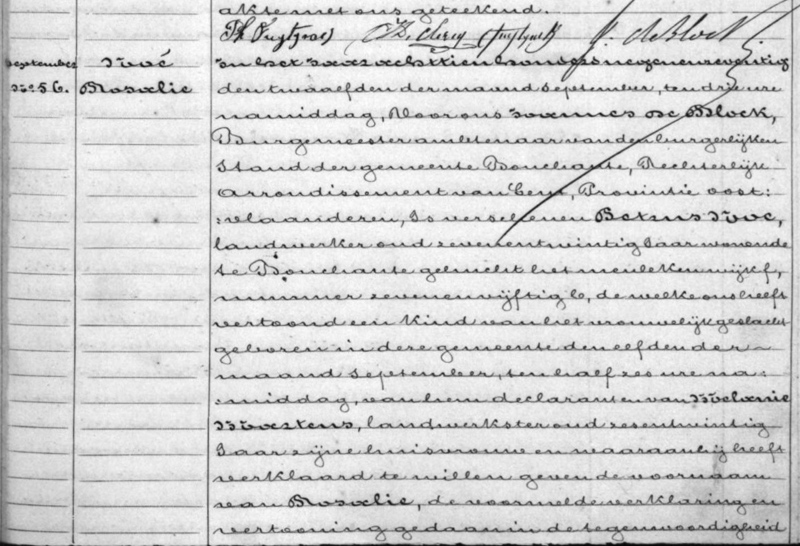 akte met ons geteekend.
De Clercq J. de Block
September
No 56.
Rosalie
In het jaar achttien honderd negen en neventig
den twaalfden der maand September, ten drie ure
namiddag, Voor ons Joannes De Block,
Burgemeester ambtenaar van den burgerlijken
Stand der gemeente Bouchaute, Rechterlijk
Arrondissement van Gent, Provintie Oost=
=vlaanderen, Is verschenen
landwerker oud zevenentwintig Jaar wonende
te Bouchaute gehucht het meuleken wijk f,
nummer zevenenvijftig b, de welke ons heeft
vertoond een kind van het vrouwelijk geslacht
geboren in deze gemeente den elfden der
maand September, ten half zes ure na=
=middag, van hem declarant en van Melanie
landwerkster oud zesentwintig
Jaar zijne huisvrouw en waaraan hij heeft
verklaard te willen geven de voornaam
van Rosalie, de voormelde verklaring en
vertooning gedaan in de tegenwoordigheid